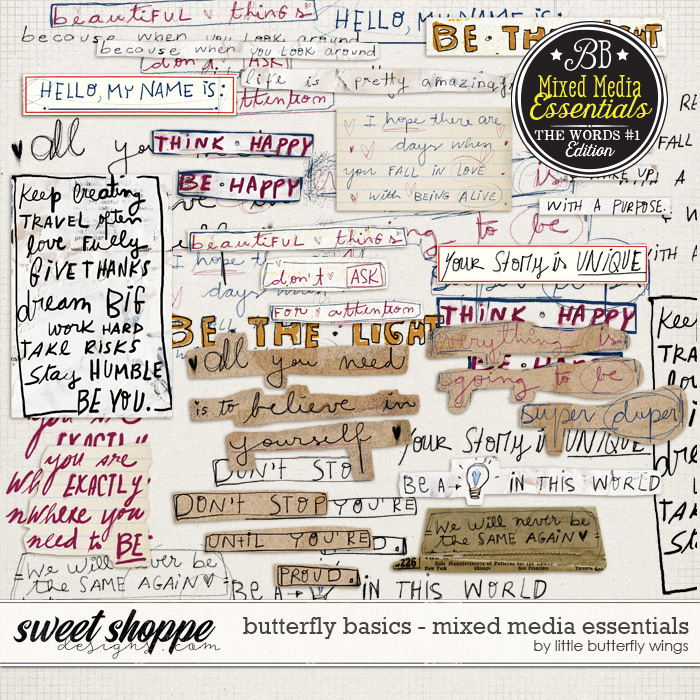 beautiful things
HELLO, MY NAME is:
because when you look around
because when you look around
BE · THE LIGHT
don't ASK
life is pretty amazing
HELLO, MY NAME is:
attention
BB
Mixed Media
Essentials
THE WORDS #1
Edition
All you
THINK · HAPPY
BE · HAPPY
I hope there are
days when
you FALL in LOVE
with BEING ALIVE
WAKE UP
WITH A PURPOSE.
Keep Creating
TRAVEL often
love fully
GIVE THANKS
dream BIG
WORK HARD
TAKE RISKS
Stay HUMBLE
BE YOU.
beautiful things
don't ASK
FOR attention
I hope
days
going to be
is
YOUR STORY is UNIQUE
BE · THE · LIGHT
THINK · HAPPY
everything is
BE HAPPY
going to be
super duper
All you need
is to believe in
yourself
Keep
TRAVEL
love
you are
EXACTLY
you are
EXACTLY
where you
need to BE
DON'T STOP
YOUR STORY is UNIQUE
BE A IN THIS WORLD
DON'T STOP
YOU'RE
UNTIL YOU'RE
PROUD.
We will never be
the SAME AGAIN
We will never be
the SAME AGAIN
226
Sole Manufacturers of Patterns for the
New York Chicago San Francisco
BE A IN THIS WORLD
sweet shoppe
designs.com
butterfly basics - mixed media essentials
by little butterfly wings